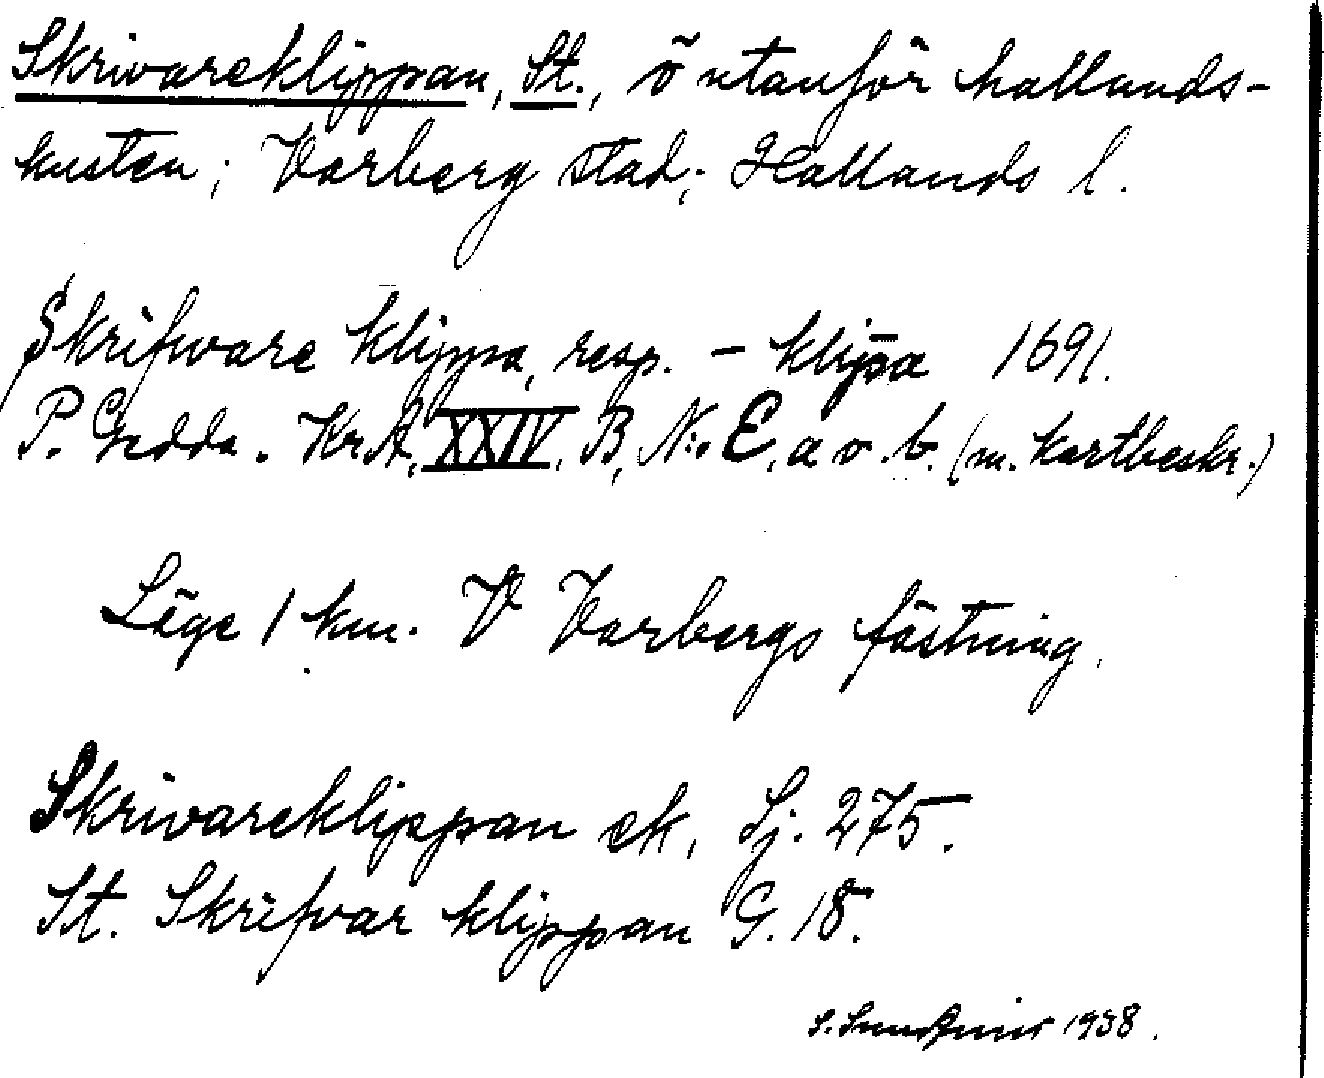 Skrivareklippan, St., ö utanför hallands-
kusten; Varberg stad; Hallands l.
Skrifware klippa, resp. - klip̄a 1691.
P. Gedda. KrA, XXIV, B, N:o E, a o. b. (m. kartbeskr.)
Läge 1 km. V Varbergs fästning.
Skrivareklippan ek, Sj. 275.
St. Skrifvar klippan G. 18.
1938.